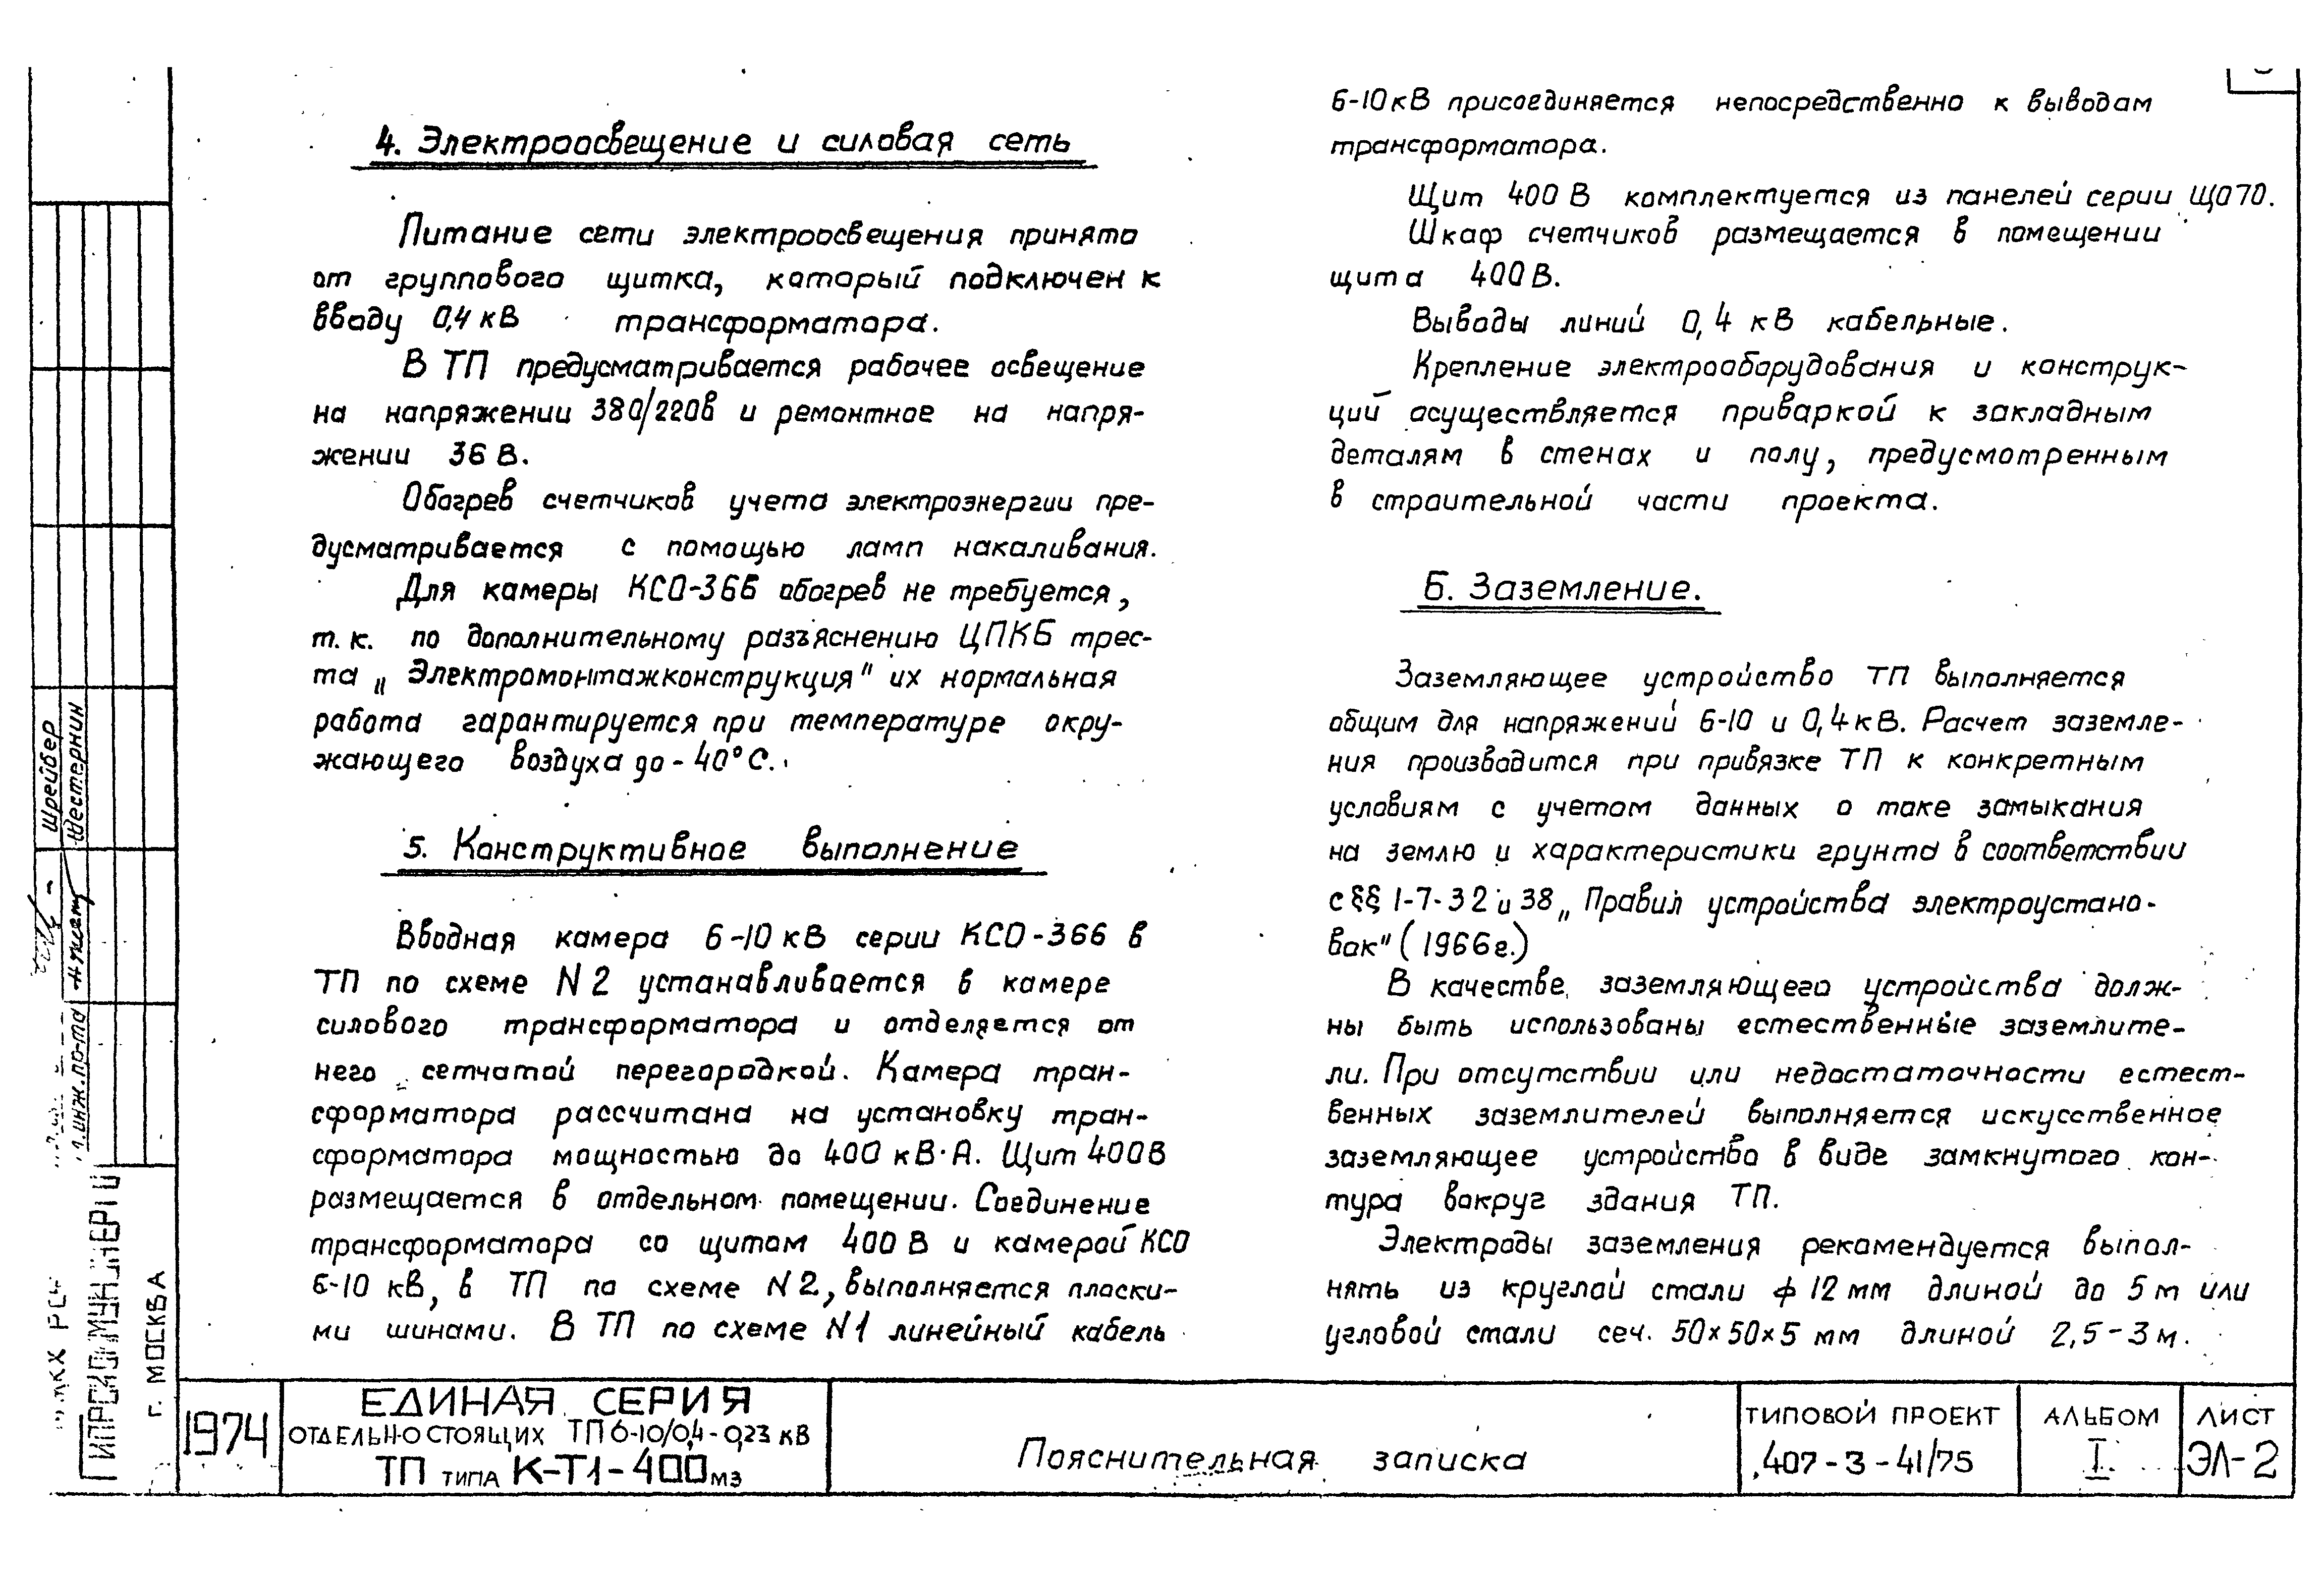 4. Электроосвещение и силовая сеть
Питание сети электроосвещения принято
от группового щитка, который подключен к
вводу 0,4 кВ трансформатора.
В ТП предусматривается рабочее освещение
на напряжении 380/220в и ремонтное на напря-
жении 36 В.
Обогрев счетчиков учета электроэнергии пре-
дусматривается с помощью ламп накаливания.
Для камеры КСО-366 обогрев не требуется,
т.к. по дополнительному разъяснению ЦПКБ трес-
та „Электромонтажконструкция" их нормальная
работа гарантируется при температуре окру-
жающего воздуха до - 40°С.
5. Конструктивное выполнение
Вводная камера 6-10 кВ серии КСО-366 в
ТП по схеме N 2 устанавливается в камере
силового трансформатора и отделяется от
него сетчатой перегородкой. Камера тран-
сформатора рассчитана на установку тран-
сформатора мощностью до 400 кВ·А. Щит 400В
размещается в отдельном помещении. Соединение
трансформатора со щитом 400 В и камерой КСО
6-10 кВ, в ТП по схеме N 2, выполняется плоски-
ми шинами. В ТП по схеме N 1 линейный кабель
6-10кВ присоединяется непосредственно к выводам
трансформатора.
Щит 400 В комплектуется из панелей серии ЩО70.
Шкаф счетчиков размещается в помещении
щита 400 В.
Выводы линий 0,4 кВ кабельные.
Крепление электрооборудования и конструк-
ций осуществляется приваркой к закладным
деталям в стенах и полу, предусмотренным
в строительной части проекта.
6. Заземление.
Заземляющее устройство ТП выполняется
общим для напряжений 6-10 и 0,4кВ. Расчет заземле-
ния производится при привязке ТП к конкретным
условиям с учетом данных о токе замыкания
на землю и характеристики грунта в соответствии
с §§ 1-7-32 и 38 „Правил устройства электроустано-
вок" (1966г.)
В качестве заземляющего устройства долж-
ны быть использованы естественные заземлите-
ли. При отсутствии или недостаточности естест-
венных заземлителей выполняется искусственное
заземляющее устройство в виде замкнутого кон-
тура вокруг здания ТП.
Электроды заземления рекомендуется выпол-
нять из круглой стали ф 12 мм длиной до 5 м или
угловой стали сеч. 50х50х5 мм длиной 2,5-3м.
Шрейбер
Шестернин
инж. пр-та
г. МОСКВА
1974
ЕДИНАЯ СЕРИЯ
ОТДЕЛЬНОСТОЯЩИХ ТП 6-10/0,4-0,23 кВ
ТП ТИПА К-Т1-400мз
Пояснительная записка
ТИПОВОЙ ПРОЕКТ
407-3-41/75
АЛЬБОМ
I
ЛИСТ
ЭЛ-2